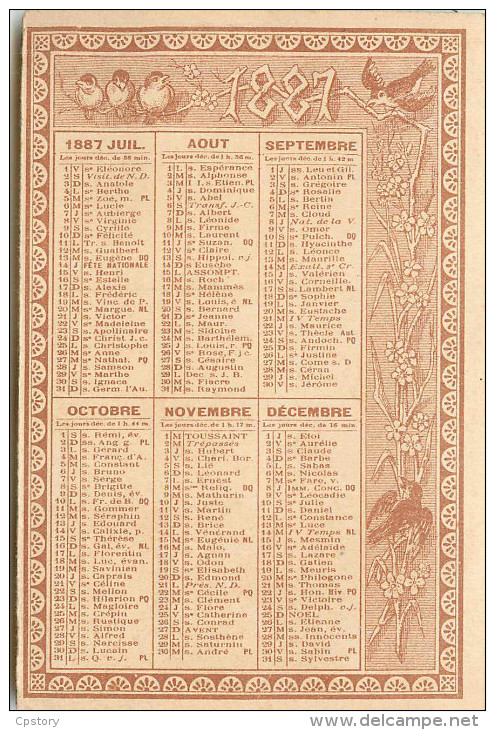 1887
1887 JUIL.
Les jours déc. de 58 min.
1 V sᵉ Eléonore
2 S Visit. de N. D.
3 D s. Anatole
4 L sᵉ Berthe
5 M sᵉ Zoé, m. PL
6 M sᵉ Lucie
7 J sᵉ Aubierge
8 V sᵉ Virginie
9 S s. Cyrille
10 D sᵉ Félicité
11 L Tr. s. Benoît
12 M s. Gualbert
13 M s. Eugène DQ
14 J FÊTE NATIONALE
15 V s. Henri
16 S sᵉ Estelle
17 D s. Alexis
18 L s. Frédéric
19 M s. Vinc. de P.
20 M sᵉ Margue. NL
21 J s. Victor
22 V sᵉ Madeleine
23 S s. Apollinaire
24 D sᵉ Christ. J.-c.
25 L s. Christophe
26 M sᵉ Anne
27 M sᵉ Nathal. PQ
28 J s. Samson
29 V sᵉ Marthe
30 S s. Ignace
31 D s. Germ. l'Au.
AOUT
Les jours déc. de 1 h. 36 m.
1 L s. Espérance
2 M s. Alphonse
3 M I. s. Etien. PL
4 J s. Dominique
5 V s. Abel
6 S Transf. J.-C.
7 D s. Albert
8 L s. Léonide
9 M s. Firme
10 M s. Laurent
11 J sᵉ Suzan. DQ
12 V sᵉ Claire
13 S s. Hippol. v.j.
14 D s. Eusèbe
15 L ASSOMPT.
16 M s. Roch
17 M s. Mammès
18 J sᵉ Hélène
19 V s. Louis, é NL
20 S s. Bernard
21 D sᵉ Jeanne
22 L s. Maur.
23 M s. Sidoine
24 M s. Barthélem.
25 J s. Louis, r. PQ
26 V sᵉ Rose, F. j c.
27 S s. Césaire
28 D s. Augustin
29 L Dec. s. J. B.
30 M s. Fiacre
31 M s. Raymond
SEPTEMBRE
Les jours déc. de 1 h. 42 m
1 J ss. Leu et Gil.
2 V s. Antonin PL
3 S s. Grégoire
4 D sᵉ Rosalie
5 L s. Bertin
6 M sᵉ Reine
7 M s. Cloud
8 J Nat. de la V.
9 V s. Omer
10 S sᵉ Pulch. DQ
11 D s. Hyacinthe
12 L s. Léonce
13 M s. Maurille
14 M Exalt. sᵉ Cr.
15 J s. Valérien
16 V s. Corneille.
17 S s. Lambert NL
18 D sᵉ Sophie
19 L s. Janvier
20 M s. Eustache
21 M IV Temps
22 J s. Maurice
23 V s. Thècle Aut
24 S s. Andoch. PQ
25 D s. Firmin
26 L sᵉ Justine
27 M s. Come s. D
28 M s. Céran
29 J s. Michel
30 V s. Jérôme
OCTOBRE
Les jours déc. de 1 h. 44 m.
1 S s. Rémi, év.
2 D ss. Ang. g. PL
3 L s. Gérard
4 M s. Franc. d'A.
5 M s. Constant
6 J s. Bruno
7 V s. Serge
8 S sᵉ Brigitte
9 D s. Denis, év.
10 L s. Fr. de B. DQ
11 M s. Gommer
12 M s. Séraphin
13 J s. Edouard
14 V s. Calixte, p.
15 S sᵉ Thérèse
16 D s. Gal, év. NL
17 L s. Florentin
18 M s. Luc, évan.
19 M s. Savinien
20 J s. Caprais
21 V sᵉ Céline
22 S s. Mellon
23 D s. Hilarion PQ
24 L s. Magloire
25 M s. Crépin
26 M s. Rustique
27 J s. Simon
28 V s. Alfred
29 S s. Narcisse
30 D s. Lucain
31 L s. Q. v. j. PL
NOVEMBRE
Les jours déc. de 1 h. 17 m.
1 M TOUSSAINT
2 M Trépassés
3 J s. Hubert
4 V s. Charl. Bor.
5 S s. Lié
6 D s. Léonard
7 L s. Ernest
8 M sᵉˢ Reliq. DQ
9 M s. Mathurin
10 J s. Juste
11 V s. Martin
12 S s. René
13 D s. Brice
14 L s. Vénérand
15 M sᵉ Eugénie NL
16 M s. Malo.
17 J s. Agnan
18 V s. Odon
19 S sᵉ Elisabeth
20 D s. Edmond
21 L Prés. N. D.
22 M sᵉ Cécile PQ
23 M s. Clément
24 J s. Flore
25 V sᵉ Catherine
26 S s. Conrad
27 D AVENT
28 L s. Sosthène
29 M s. Saturnin
30 M s. André PL
DÉCEMBRE
Les jours déc. de 16 min.
1 J s. Eloi
2 V sᵉ Aurélie
3 S s Claude
4 D sᵉ Barbe
5 L s. Sabas
6 M s. Nicolas
7 M sᵉ Fare, v.
8 J Imm. Conc. DQ
9 V sᵉ Léocadie
10 S sᵉ Julie
11 D s. Daniel
12 L sᵉ Constance
13 M sᵉ Luce
14 M IV Temps NL
15 J s. Mesmin
16 V sᵉ Adélaïde
17 S s. Lazare
18 D s. Gatien
19 L s. Meuris
20 M sᵉ Philogone
21 M s. Thomas
22 J s. Hon. Hiv PQ
23 V sᵉ Victoire
24 S s. Delph. v.j.
25 D NOEL
26 L s. Etienne
27 M s. Jean, év.
28 M ss. Innocents
29 J s. David
30 V s. Sabin PL
31 S s. Sylvestre
Cpstory
delcampe.net